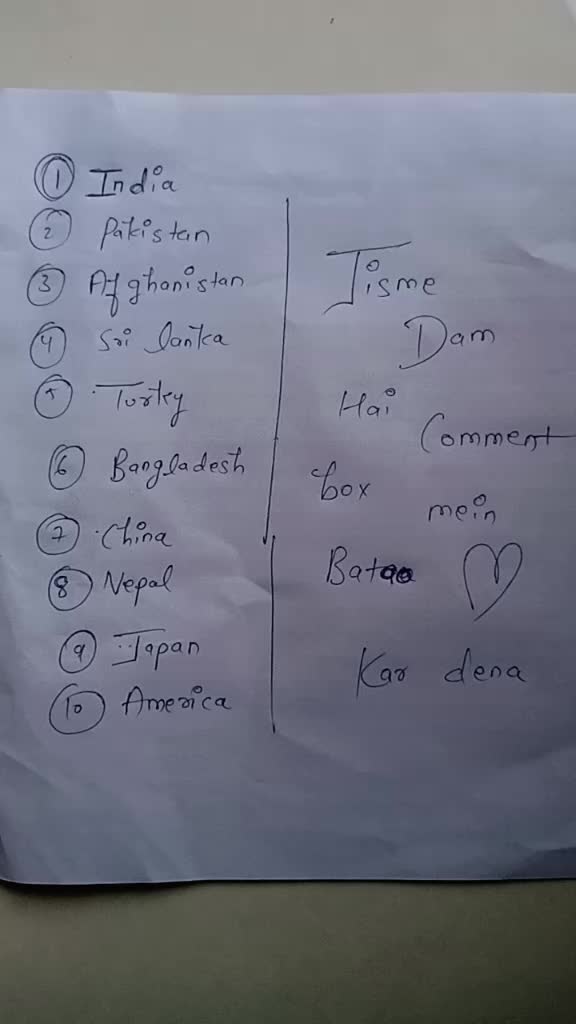 ① India
② Pakistan
③ Afghanistan
④ Sri lanka
⑤ Turkey
⑥ Bangladesh
⑦ China
⑧ Nepal
⑨ Japan
⑩ America
Jisme
Dam
Hai
Comment
box
mein
Batao
Kar dena